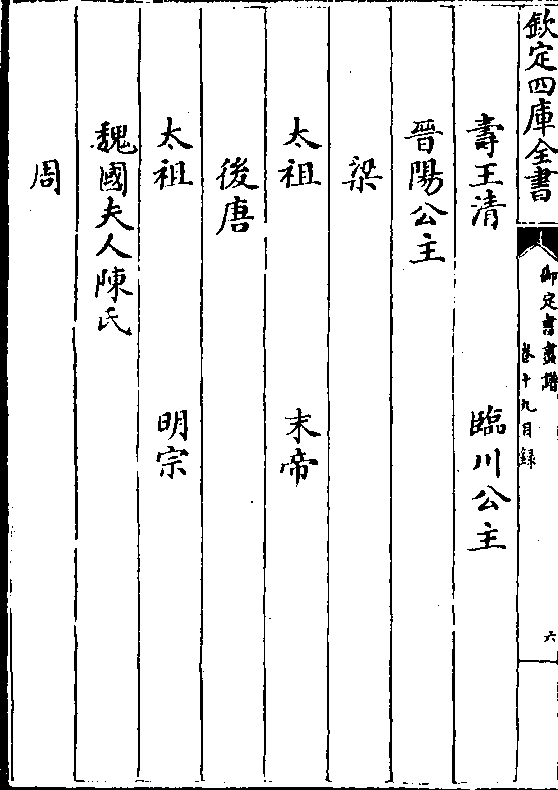 欽定四庫全書
御定書畫譜
卷十九目録
六
壽王清 臨川公主
晉陽公主
梁
太祖 末帝
後唐
太祖 明宗
魏國夫人陳氏
周